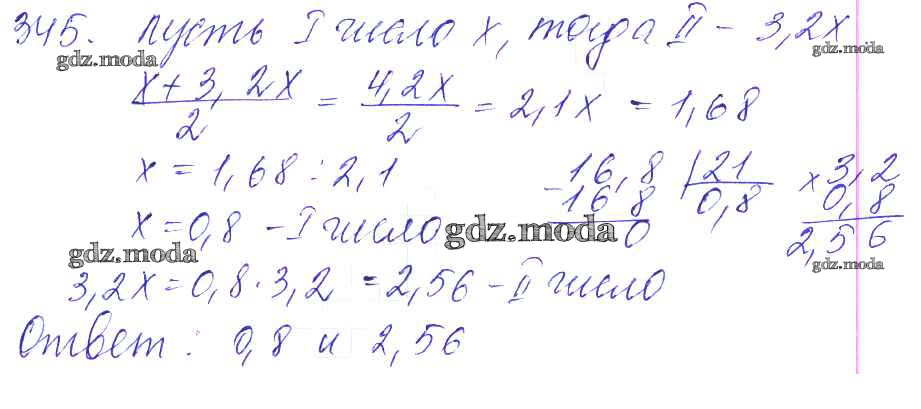 345. Пусть I число x, тогда II – 3,2x
gdz.moda
gdz.moda
(x + 3,2x)/2 = 4,2x/2 = 2,1x = 1,68
gdz.moda
gdz.moda
x = 1,68 : 2,1
x = 0,8 – I число
16,8 | 21
– 16 8 0,8
0
× 3,2
0,8
2,56
gdz.moda
gdz.moda
gdz.moda
3,2x = 0,8 · 3,2 = 2,56 – II число
Ответ: 0,8 и 2,56